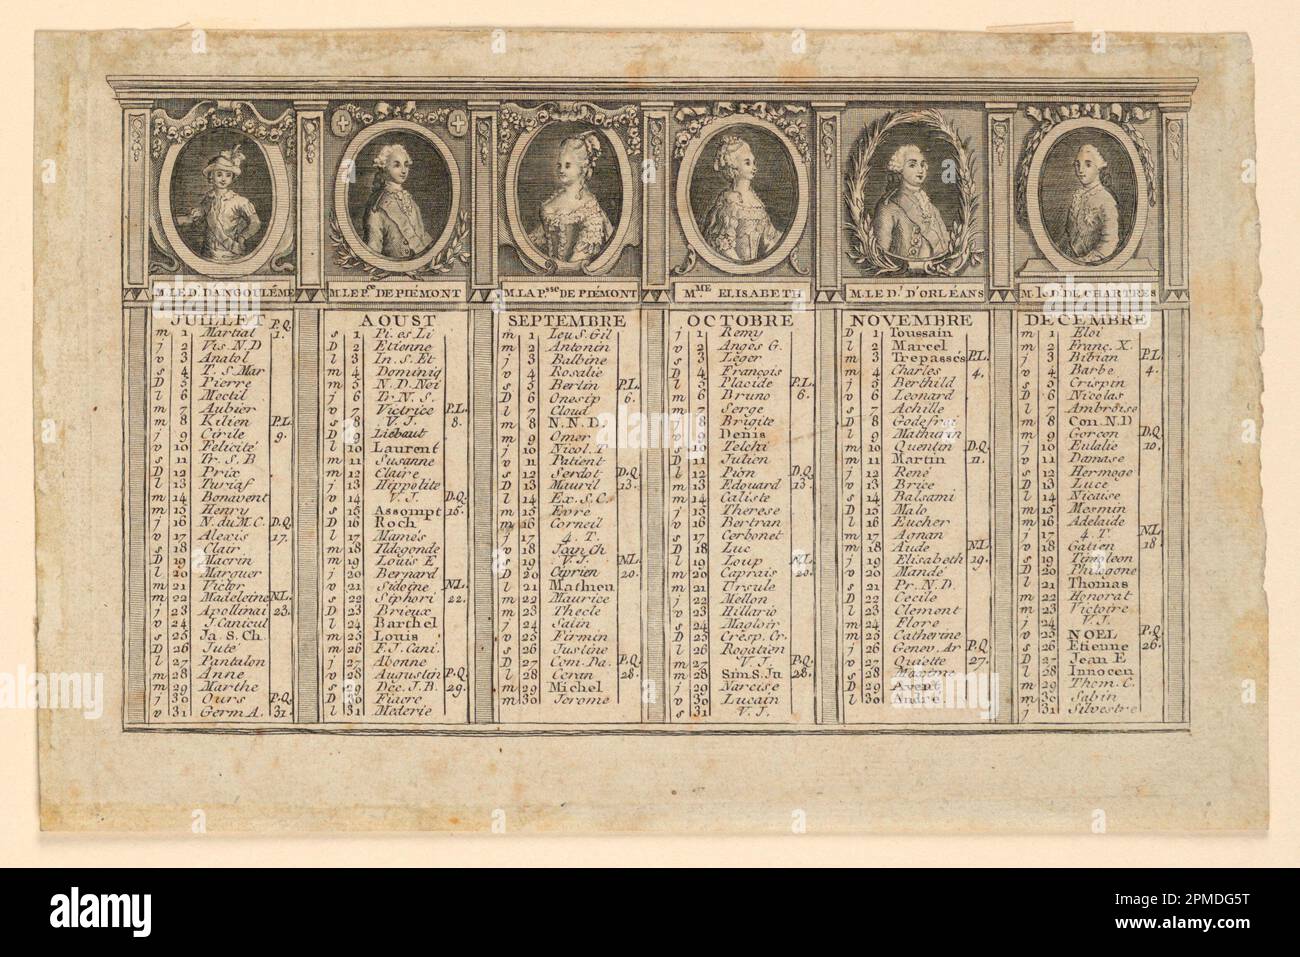 M. LE D. D'ANGOULÊME
JUILLET
m 1 Martial P.Q. 1.
j 2 Vis. N. D
v 3 Anatol
s 4 T. S. Mar
D 5 Pierre
l 6 Mectil
m 7 Aubier
m 8 Kilien P.L.
j 9 Cirile 9.
v 10 Felicité
s 11 Tr. S. B
D 12 Prix
l 13 Turiaf
m 14 Bonavent
m 15 Henry
j 16 N. du M. C. D.Q.
v 17 Alexis 17.
s 18 Clair
D 19 Macrin
l 20 Marguer
m 21 Victor
m 22 Madeleine N.L.
j 23 Apollinai 23.
v 24 J. Canicul
s 25 Ja. S. Ch.
D 26 Jute
l 27 Pantalon
m 28 Anne
m 29 Marthe
j 30 Ours P.Q.
v 31 Germ A. 31.
M. LE P.ce DE PIÉMONT
AOUST
s 1 Pi. es Li
D 2 Etienne
l 3 In. S. Et
m 4 Dominiq
m 5 N. D. Nei
j 6 Tr. N. S.
v 7 Victrice P.L.
s 8 V. J. 8.
D 9 Liébaut
l 10 Laurent
m 11 Susanne
m 12 Claire
j 13 Hippolite
v 14 V. J. D.Q.
s 15 Assompt 15.
D 16 Roch
l 17 Mamés
m 18 Ildegonde
m 19 Louis E
j 20 Bernard
v 21 Sidoine N.L.
s 22 Siphori 22.
D 23 Brieux
l 24 Barthel
m 25 Louis
m 26 F. J. Cani.
j 27 Abonne
v 28 Augustin P.Q.
s 29 Déc. J. B. 29.
D 30 Fiacre
l 31 Mederie
M. LA P.sse DE PIÉMONT
SEPTEMBRE
m 1 Leu S. Gil
m 2 Antonin
j 3 Balbine
v 4 Rosalie
s 5 Bertin P.L.
D 6 Onesip 6.
l 7 Cloud
m 8 N. N. D.
m 9 Omer
j 10 Nicol. T
v 11 Patient
s 12 Serdot D.Q.
D 13 Mauril 13.
l 14 Ex. S. C.
m 15 Evre
m 16 Corneil
j 17 4. T
v 18 Jean Ch
s 19 V. J. N.L.
D 20 Ciprien 20.
l 21 Mathieu
m 22 Maurice
m 23 Thecle
j 24 Salin
v 25 Firmin
s 26 Justine
D 27 Com. Da. P.Q.
l 28 Ceran 28.
m 29 Michel
m 30 Jerome
M.ME ELISABETH
OCTOBRE
j 1 Remy
v 2 Angés G.
s 3 Léger
D 4 François
l 5 Placide P.L.
m 6 Bruno 6.
m 7 Serge
j 8 Brigite
v 9 Denis
s 10 Telchi
D 11 Julien
l 12 Pion D.Q.
m 13 Edouard 13.
m 14 Caliste
j 15 Therese
v 16 Bertran
s 17 Cerbonet
D 18 Luc
l 19 Loup N.L.
m 20 Caprais 20.
m 21 Ursule
j 22 Mellon
v 23 Hillario
s 24 Magloir
D 25 Cresp. Cr.
l 26 Rogatien
m 27 V. J. P.Q.
m 28 Sim. S. Ju. 28.
j 29 Narcise
v 30 Lucain
s 31 V. J.
M. LE D.r D'ORLÉANS
NOVEMBRE
D 1 Toussain
l 2 Marcel
m 3 Trepassés P.L.
m 4 Charles 4.
j 5 Berthild
v 6 Leonard
s 7 Achille
D 8 Godefroi
l 9 Mathurin
m 10 Quentin D.Q.
m 11 Martin 11.
j 12 René
v 13 Brice
s 14 Balsami
D 15 Malo
l 16 Eucher
m 17 Agnan
m 18 Aude N.L.
j 19 Elisabeth 19.
v 20 Mande
s 21 Pr. N. D.
D 22 Cecile
l 23 Clement
m 24 Flore
m 25 Catherine
j 26 Genev. Ar P.Q.
v 27 Quiette 27.
s 28 Maxime
D 29 Avent
l 30 André
CHARTRES
DECEMBRE
m 1 Eloi
m 2 Franc. X.
j 3 Bibian P.L.
v 4 Barbe 4.
s 5 Crispin
D 6 Nicolas
l 7 Ambroise
m 8 Con. N. D
m 9 Gorcon D.Q.
j 10 Eulalie 10.
v 11 Damare
s 12 Hermoge
D 13 Luce
l 14 Nicaise
m 15 Mesmin
m 16 Adelaide
j 17 4. T N.L.
v 18 Gatien 18.
s 19 Timoleon
D 20 Philogone
l 21 Thomas
m 22 Honorat
m 23 Victoire
j 24 V. J.
v 25 NOEL P.Q.
s 26 Etienne 26.
D 27 Jean E
l 28 Innocen
m 29 Thom. C.
m 30 Sabin
j 31 Silvestre
alamy
Image ID: 2PMDG5T
www.alamy.com